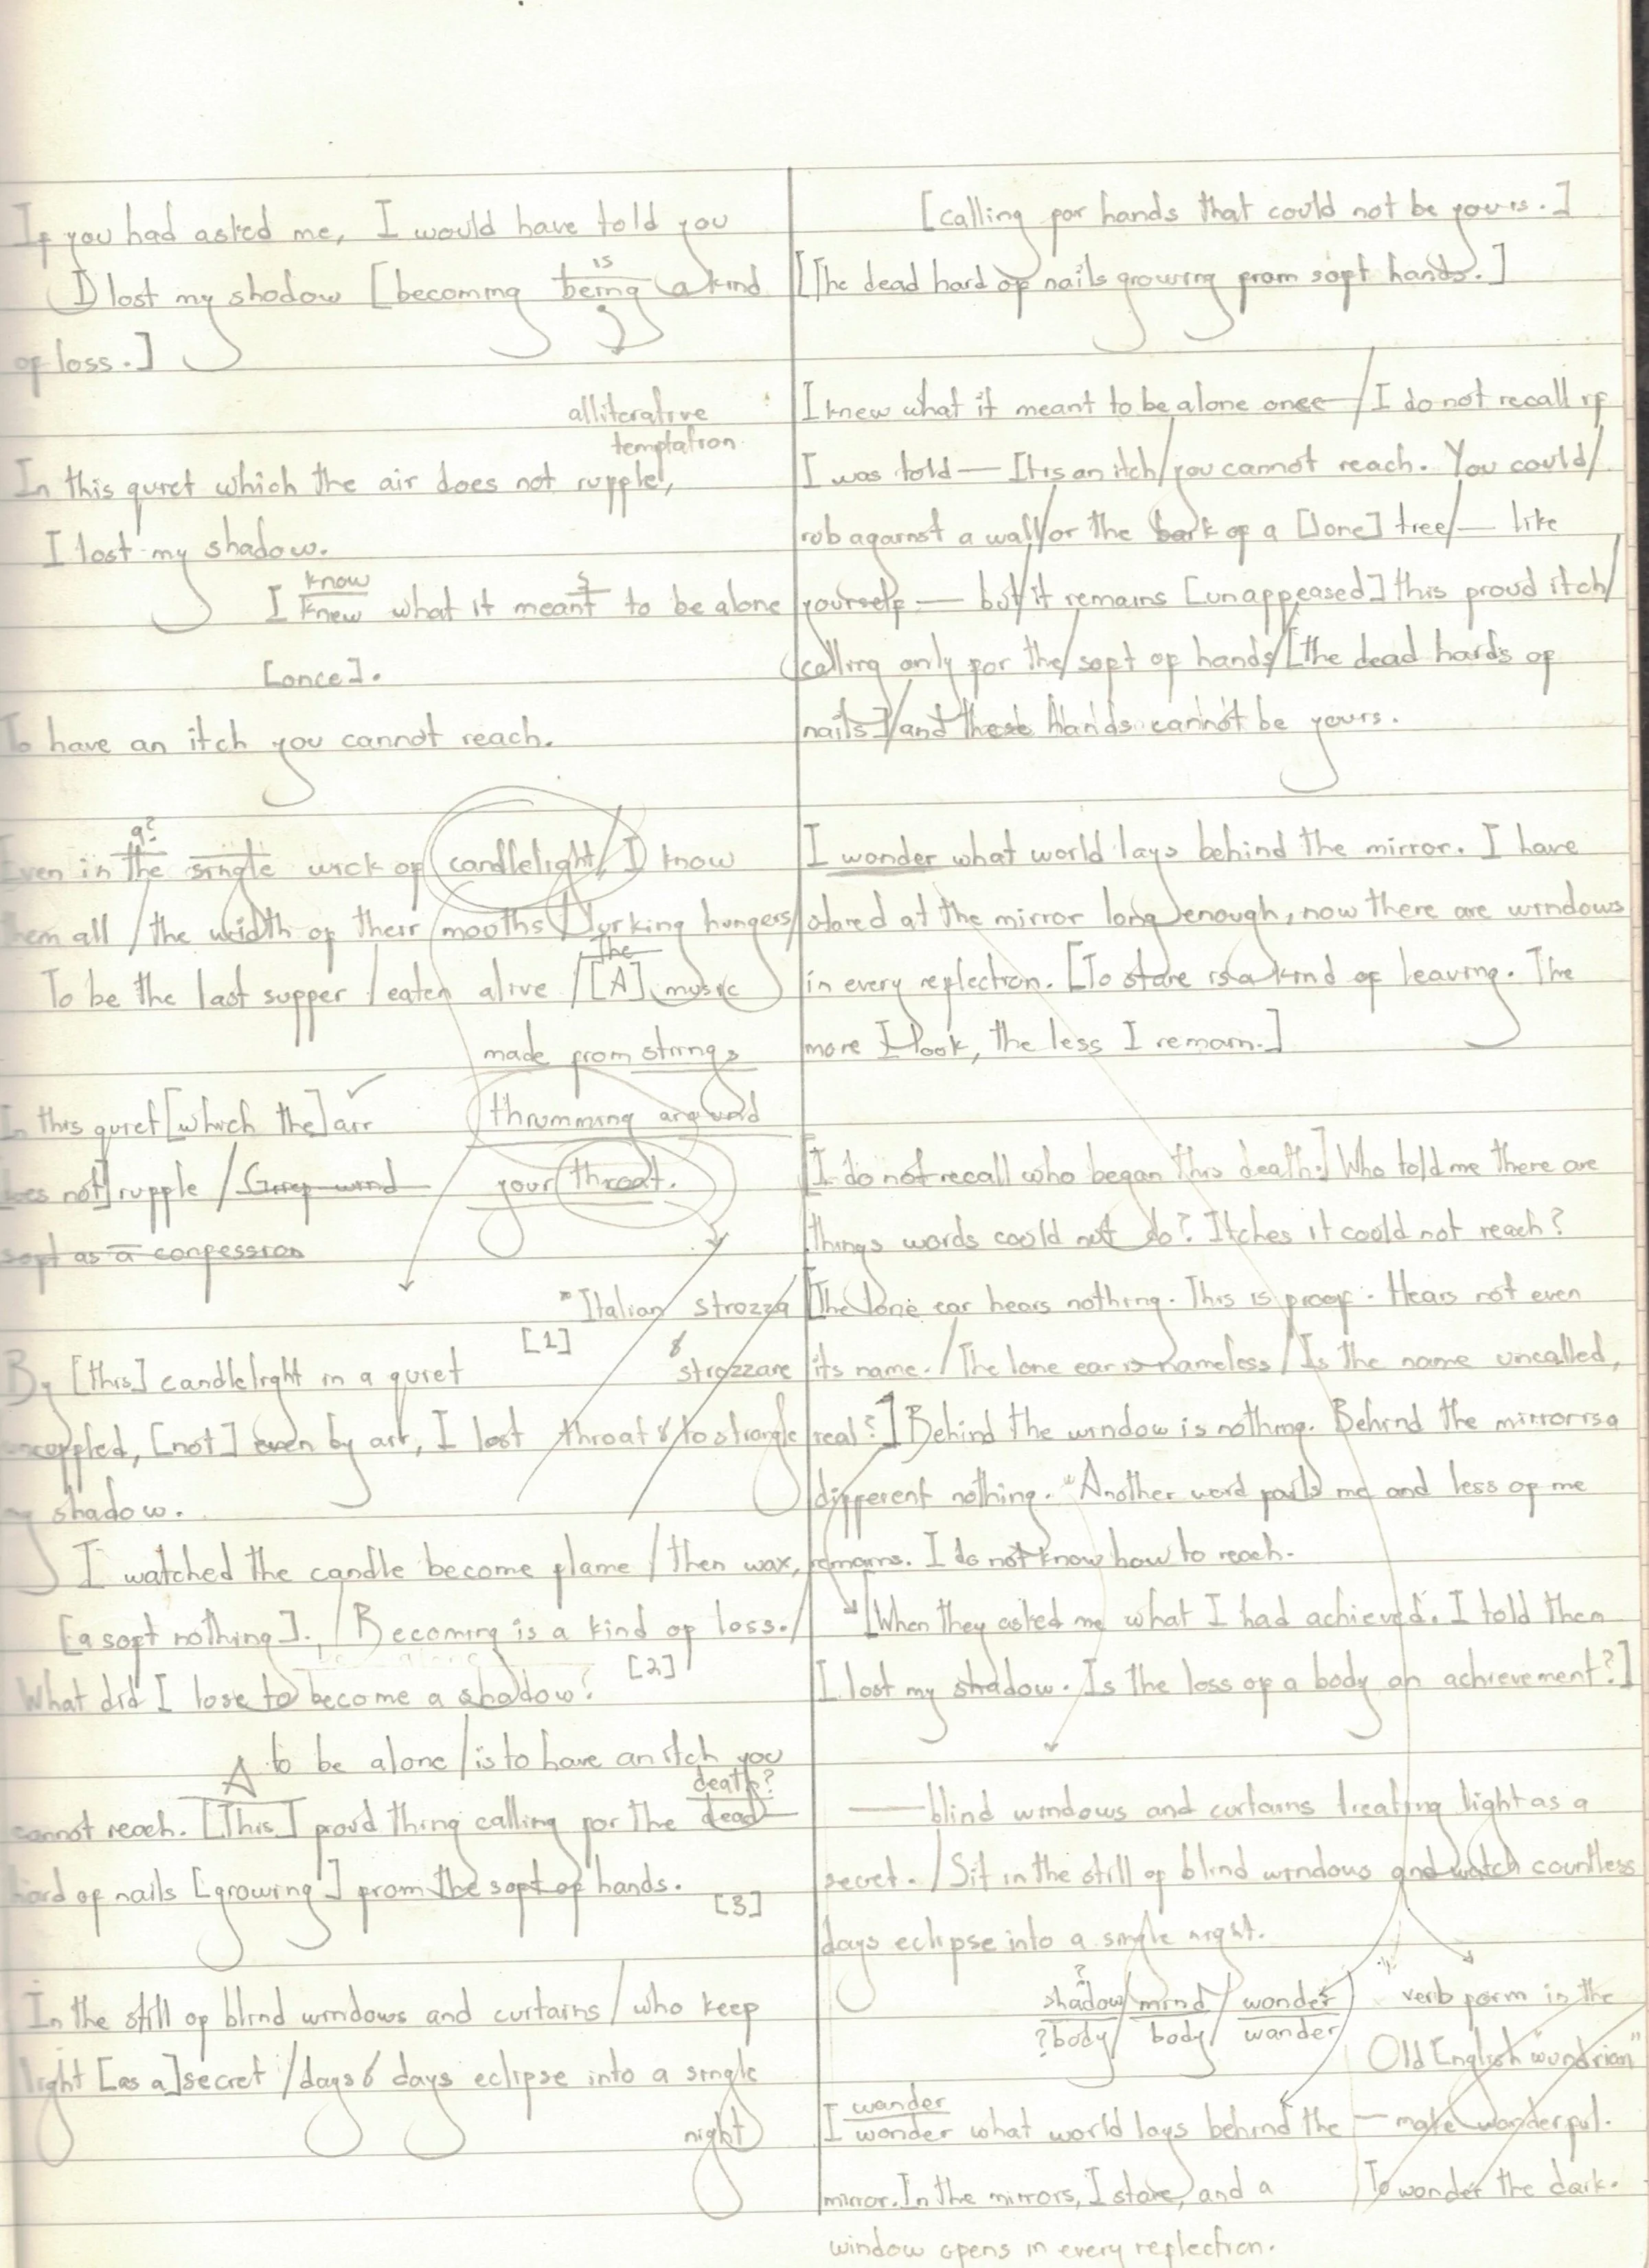 If you had asked me, I would have told you
is
I lost my shadow [becoming being a kind
of loss.]
alliterative
temptation
In this quiet which the air does not rupple,
I lost my shadow.
know s
I knew what it meant to be alone
[once].
To have an itch you cannot reach.
a?
Even in the single wick of candlelight / I know
them all / the width of their mouths lurking hungers /
the
To be the last supper / eaten alive / [A] music
made from strings
In this quiet [which the] air
thrumming around
does not] rupple / Grey wind
your throat.
soft as a confession
"Italian strozza
[1]
&
strozzare
By [this] candlelight in a quiet
unruppled, [not] even by air, I lost
throat & to strangle
my shadow.
I watched the candle become flame / then wax,
[a soft nothing]. / Becoming is a kind of loss. /
[2]
What did I lose to become a shadow?
A to be alone / is to have an itch you
death?
cannot reach. [This] proud thing calling for the dead
hard of nails [growing] from the soft of hands.
[3]
In the still of blind windows and curtains / who keep
light [as a] secret / days & days eclipse into a single
night
[calling for hands that could not be yours.]
[The dead hard of nails growing from soft hands.]
I knew what it meant to be alone once / I do not recall if
I was told — It is an itch / you cannot reach. You could /
rub against a wall / or the bark of a [lone] tree / — like
yourself — but / it remains [unappeased] this proud itch /
calling only for the / soft of hands / [the dead hards of
nails] / and these hands cannot be yours.
I wonder what world lays behind the mirror. I have
stared at the mirror long enough, now there are windows
in every reflection. [To stare is a kind of leaving. The
more I look, the less I remain.]
[I do not recall who began this death.] Who told me there are
things words could not do? Itches it could not reach?
[The lone ear hears nothing. This is proof. Hears not even
its name. / The lone ear is nameless / Is the name uncalled,
real?] Behind the window is nothing. Behind the mirror is a
different nothing. "Another word fails me and less of me
remains. I do not know how to reach.
[When they asked me what I had achieved. I told them
I lost my shadow. Is the loss of a body an achievement?]
— blind windows and curtains treating light as a
secret. / Sit in the still of blind windows and watch countless
days eclipse into a single night.
?
shadow / mind / wonder
?body / body / wander
verb form in the
Old English "wundrian"
— make wonderful.
To wonder the dark.
wander
I wonder what world lays behind the
mirror. In the mirrors, I stare, and a
window opens in every reflection.